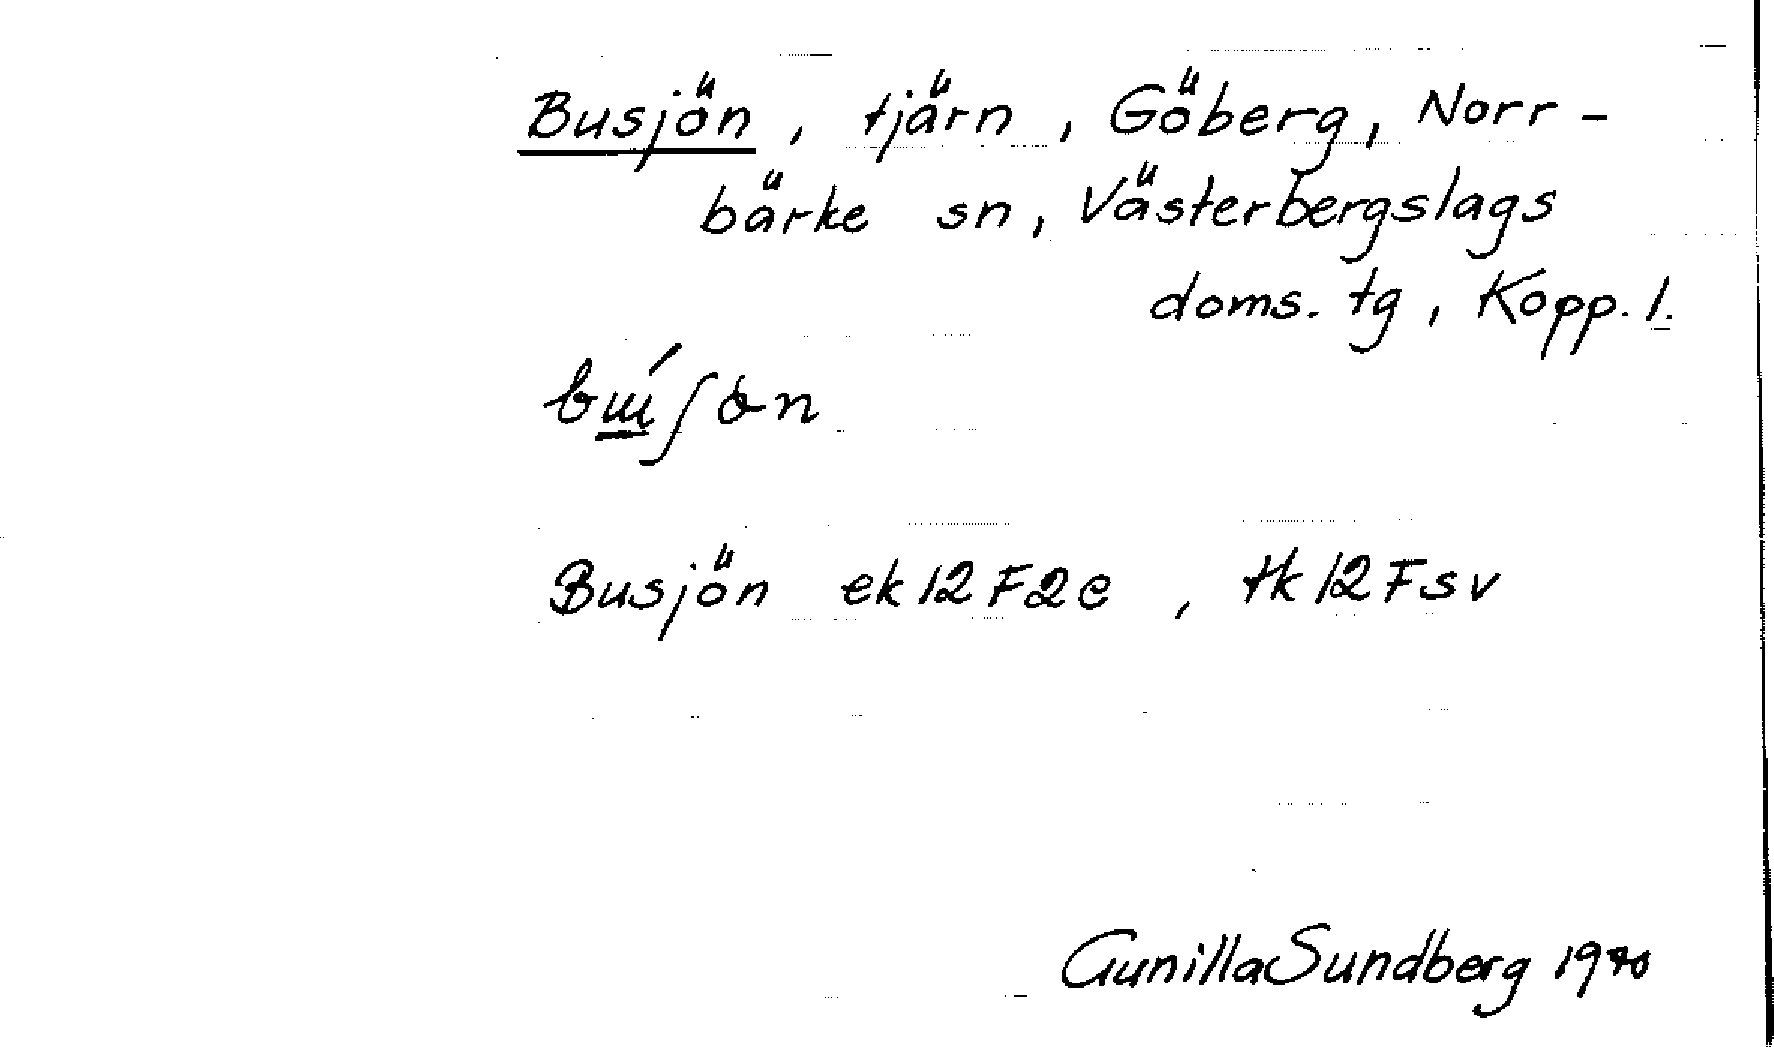 Busjön, tjärn, Göberg, Norr-
bärke sn, Västerbergslags
doms. tg, Kopp. l.
Busjön ek 12F2e, tk 12Fsv
Gunilla Sundberg 1970